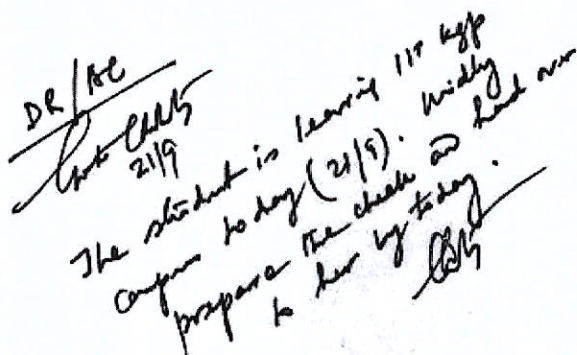 DR/AC
21/9
The student is leaving IIT kgp
campus today (21/9). Kindly
prepare the cheque and hand over
to her by today.